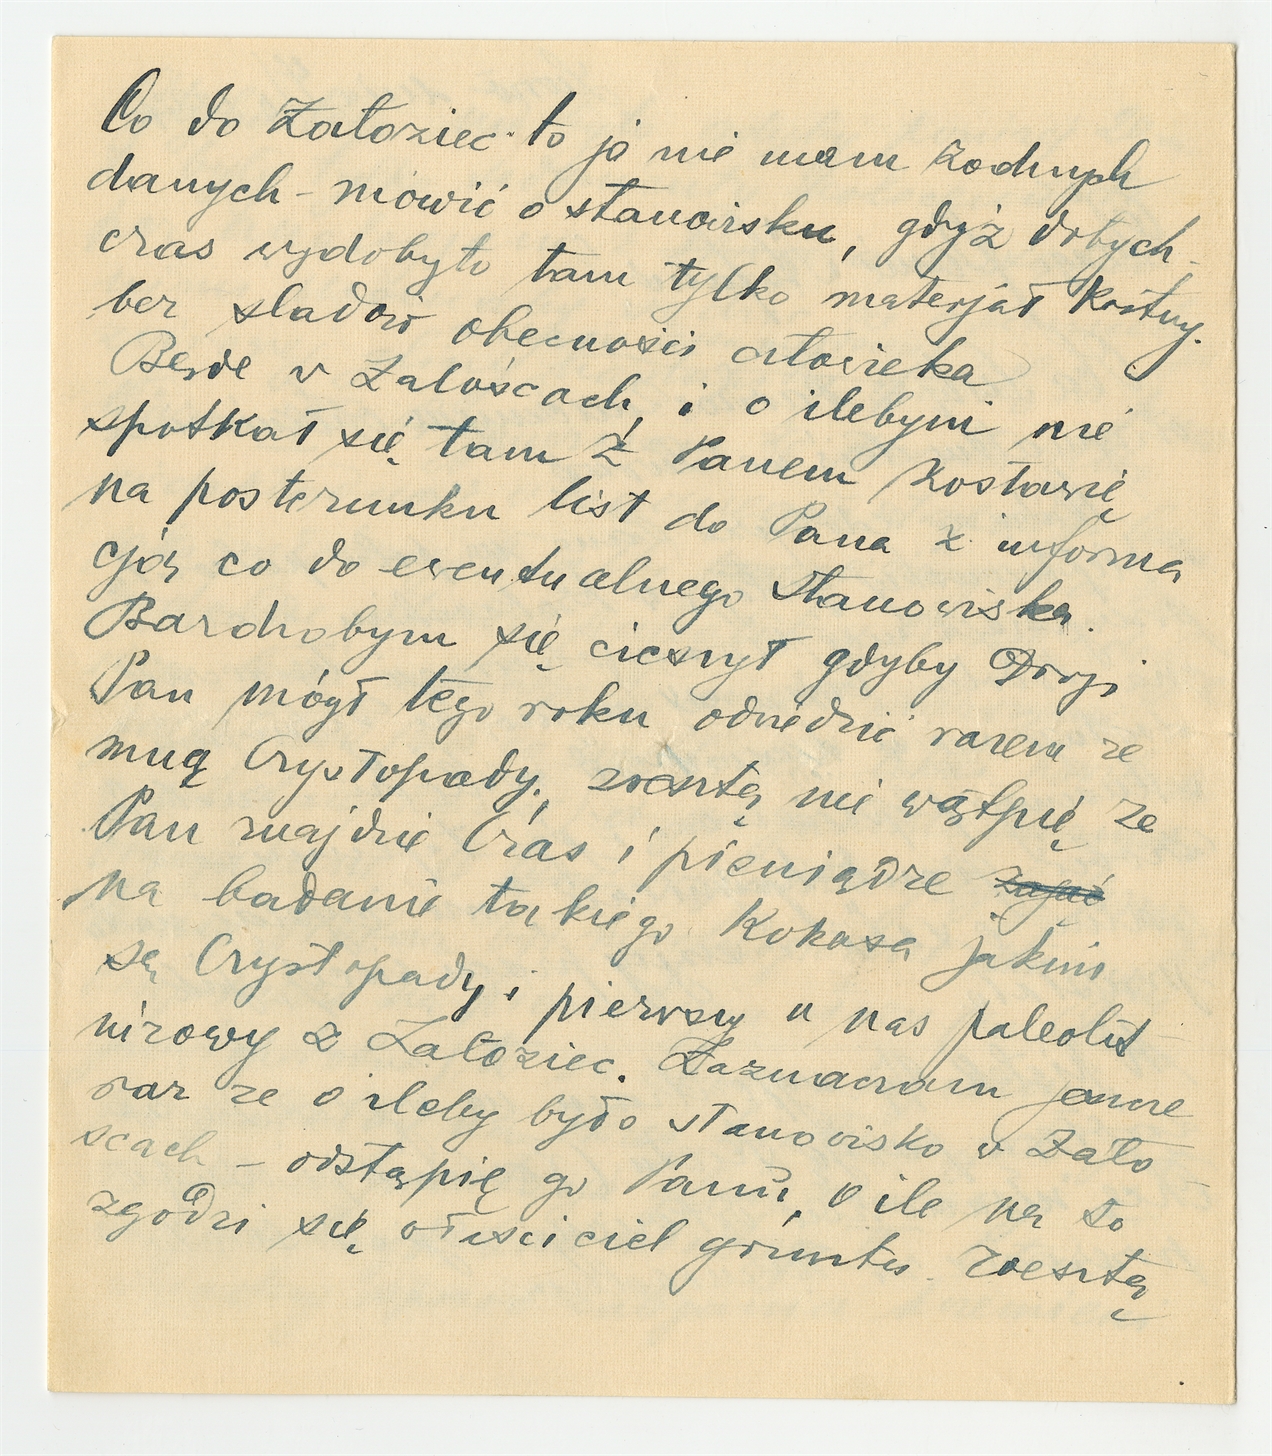 Co do Załoziec to ja nie mam żadnych
danych – mówić o stanowisku, gdyż dotych-
czas wydobyto tam tylko materjał kostny.
bez sladów obecności człowieka
Będe w Załoścach, i o ilebym nie
spotkał się tam z Panem zostawię
na posterunku list do Pana z informa
cją co do ewentualnego stanowiska.
Bardzobym się cieszył gdyby Drogi
Pan mógł tego roku odwiedzić razem ze
mną Czystopady, zresztą nie wątpię ze
Pan znajdzie Czas i pieniądze zająć
na badanie takiego Kokosa jakimi
są Czystopady i pierwszy u nas paleolit
nizowy z Załoziec. Zaznaczam jeszcze
raz ze o ileby było stanowisko w Zało-
scach – odstąpię go Panu, o ile na to
zgodzi się właściciel gruntu. Zresztą